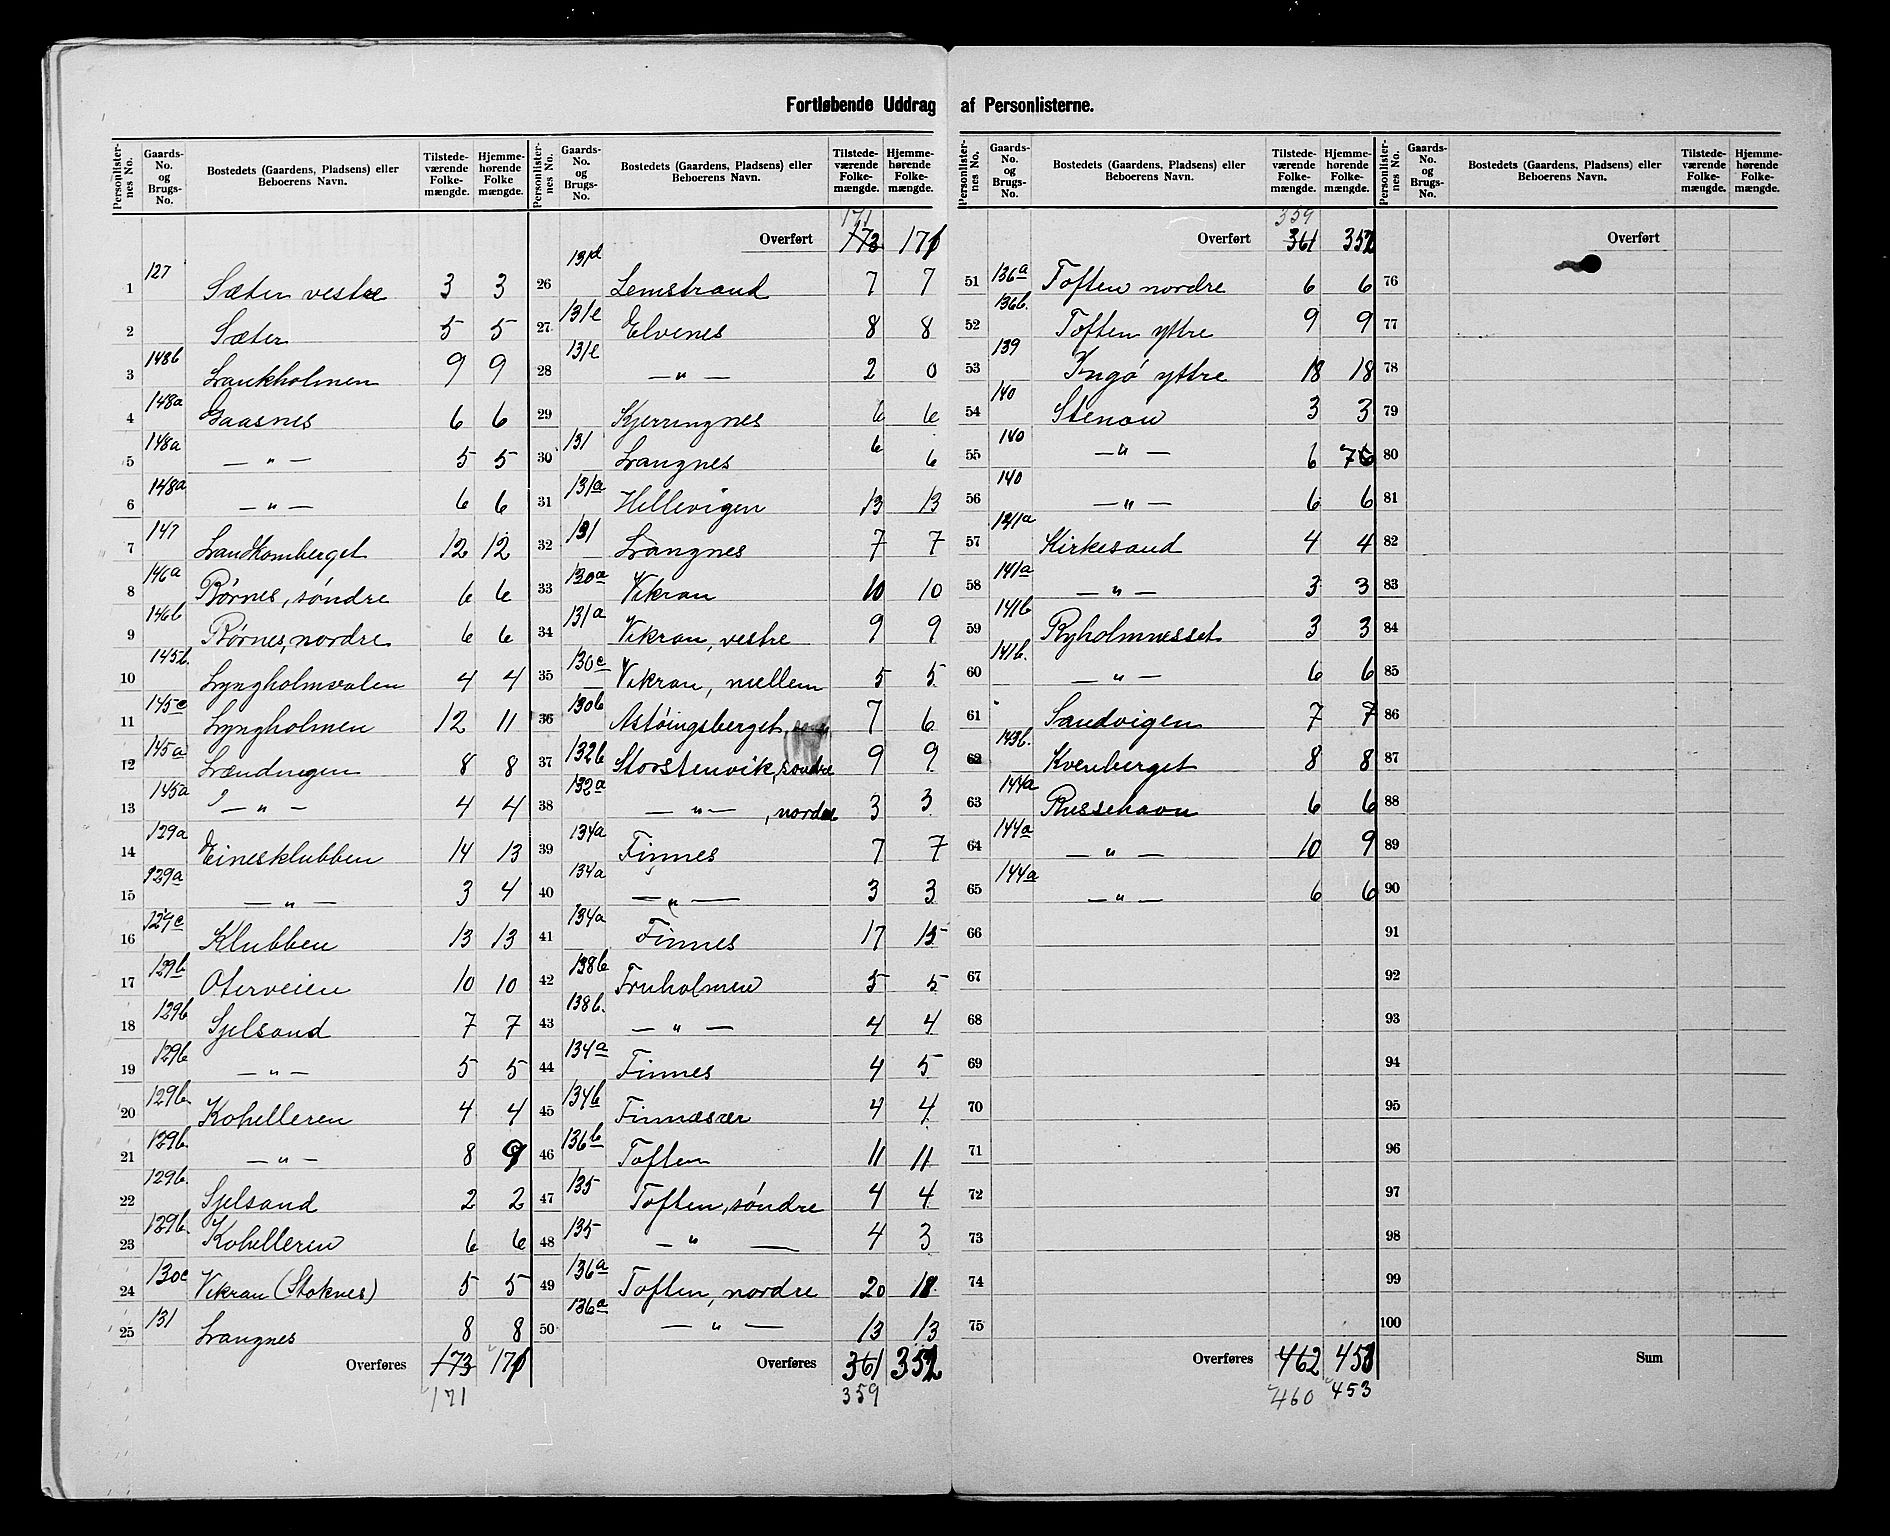 Fortløbende Uddrag af Personlisterne.
Personlister- nes No. | Gaards- No. og Brugs- No. | Bostedets (Gaardens, Pladsens) eller Beboerens Navn. | Tilstede- værende Folke- mængde. | Hjemme- hørende Folke mængde.
1 127 Sæter vestre 3 3
2 Sæter 5 5
3 148b Lankholmen 9 9
4 148a Gaasnes 6 6
5 148a — " — 5 5
6 148a — " — 6 6
7 147 12 12
8 146a Børnes, søndre 6 6
9 146b Børnes, nordre 6 6
10 145b. Lyngholmvalen 4 4
11 145c Lyngholmen 12 11
12 145a 8 8
13 145a — " — 4 4
14 129a Einesklubben 14 13
15 129a — " — 3 4
16 129c Klubben 13 13
17 129b Oterveien 10 10
18 129b Sjelsand 7 7
19 129b — " — 5 5
20 129b. Kohelleren 4 4
21 129b. — " — 8 9
22 129b. Sjelsand 2 2
23 129b. Kohelleren 6 6
24 130c Vikran (Stoknes) 5 5
25 131 Langnes 8 8
Overføres 173 171
171
Personlister- nes No. | Gaards- No. og Brugs- No. | Bostedets (Gaardens, Pladsens) eller Beboerens Navn. | Tilstede- værende Folke- mængde. | Hjemme- hørende Folke- mængde.
171
Overført 173 171
26 131d Lemstrand 7 7
27 131e Elvenes 8 8
28 131e — " — 2 0
29 Kjerringnes 6 6
30 131 Langnes 6 6
31 131a Hellevigen 13 13
32 131 Langnes 7 7
33 130a Vikran 10 10
34 131a Vikran, vestre 9 9
35 130c Vikran, mellem 5 5
36 130b Astøingsberget 7 6
37 132b Storstenvik, søndre 9 9
38 132a — " — , nordre 3 3
39 134a Finnes 7 7
40 134a — " — 3 3
41 134a Finnes 17 15
42 138b Fruholmen 5 5
43 138b. — " — 4 4
44 134a Finnes 4 5
45 134b Finnæsvær 4 4
46 136b Toften 11 11
47 135 Toften, søndre 4 4
48 135 — " — 4 3
49 136a Toften, nordre 20 18
50 136a — " — 13 13
Overføres 361 352
359
Personlister- nes No. | Gaards- No. og Brugs- No. | Bostedets (Gaardens, Pladsens) eller Beboerens Navn. | Tilstede- værende Folke- mængde. | Hjemme- hørende Folke- mængde.
359
Overført 361 352
51 136a Toften nordre 6 6
52 136b. Toften yttre 9 9
53 139 Ingø yttre 18 18
54 140 Stenou 3 3
55 140 — " — 6 6
56 140 — " — 6 6
57 141a Kirkesand 4 4
58 141a — " — 3 3
59 141b Ryholmnesset 3 3
60 141b. — " — 6 6
61 " Sandvigen 7 7
62 143b. Kvenberget 8 8
63 144a Russehavn 6 6
64 144a — " — 10 9
65 144a — " — 6 6
66
67
68
69
70
71
72
73
74
75
Overføres 462 453
460 453
Personlister- nes No. | Gaards- No. og Brugs- No. | Bostedets (Gaardens, Pladsens) eller Beboerens Navn. | Tilstede- værende Folke- mængde. | Hjemme- hørende Folke- mængde.
Overført
76
77
78
79
80
81
82
83
84
85
86
87
88
89
90
91
92
93
94
95
96
97
98
99
100
Sum